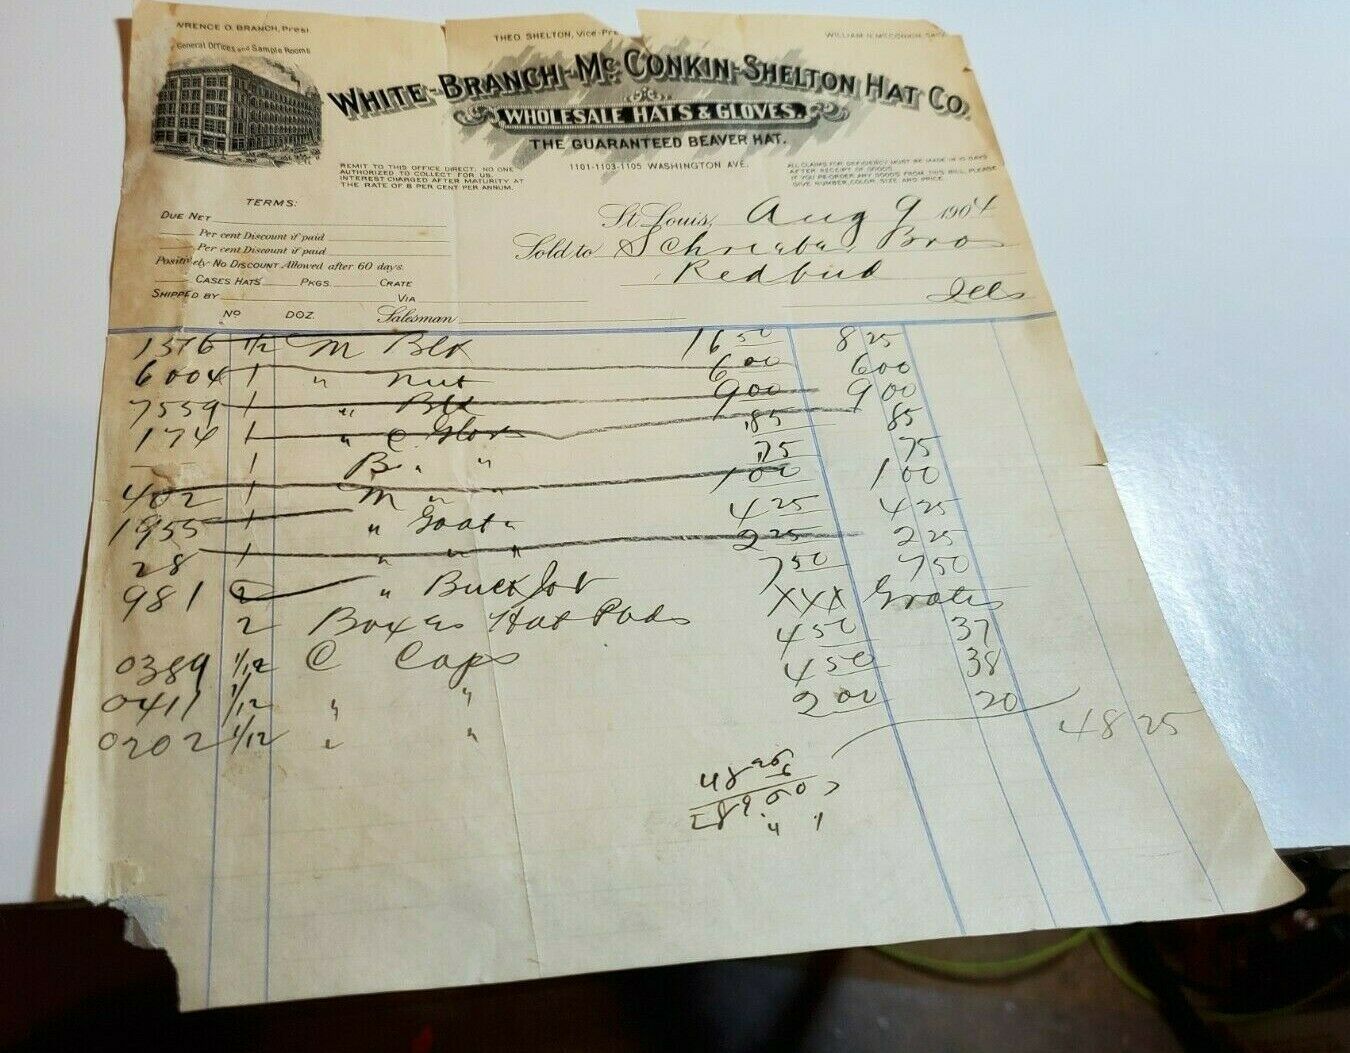 WRENCE O. BRANCH, Prest
THEO. SHELTON, Vice-Pre
WILLIAM N. McCONKIN, Sec
General Offices and Sample Rooms
WHITE-BRANCH-Mc CONKIN-SHELTON HAT CO.
WHOLESALE HATS & GLOVES.
THE GUARANTEED BEAVER HAT.
1101-1103-1105 WASHINGTON AVE.
REMIT TO THIS OFFICE DIRECT. NO ONE
AUTHORIZED TO COLLECT FOR US.
INTEREST CHARGED AFTER MATURITY AT
THE RATE OF 8 PER CENT PER ANNUM.
ALL CLAIMS FOR DEFICIENCY MUST BE MADE IN 10 DAYS
AFTER RECEIPT OF GOODS.
IF YOU RE-ORDER ANY GOODS FROM THIS BILL, PLEASE
GIVE NUMBER, COLOR, SIZE AND PRICE.
TERMS:
DUE NET
Per cent Discount if paid
Per cent Discount if paid
Positively No DISCOUNT Allowed after 60 days.
CASES HATS PKGS. CRATE
SHIPPED BY VIA
No DOZ. Salesman
St. Louis, Aug 9 1904
Sold to Schrieber Bros
Redbud
Ills
1376 1/2 M Blk 16 50 8 25
6004 1 " Nut 6 00 6 00
7559 1 " Blk 9 00 9 00
174 1 " C Glov 85 85
1 B " " 75 75
402 1 M " " 1 00 1 00
1955 1 " Goat " 4 25 4 25
28 1 " " " 2 25 2 25
981 2 " Buck Job 7 50 7 50
2 Boxes Hat Pads XXX Gratis
0389 1/12 C Caps 4 50 37
0411 1/12 " " 4 50 38
0202 1/12 " " 2 00 20
48 25